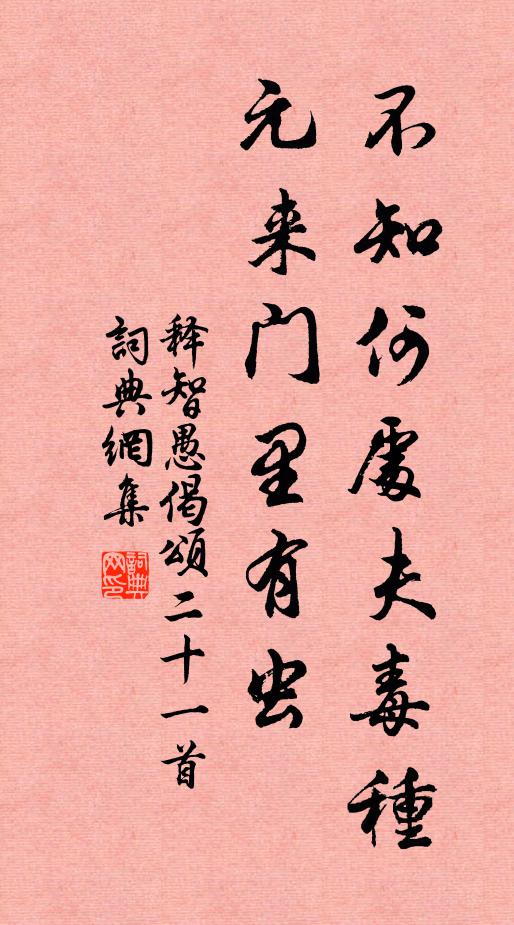 不知何處夫毒種
元来门里有虫
释智愚偈頌二十一首
詞典網集
詞典网印